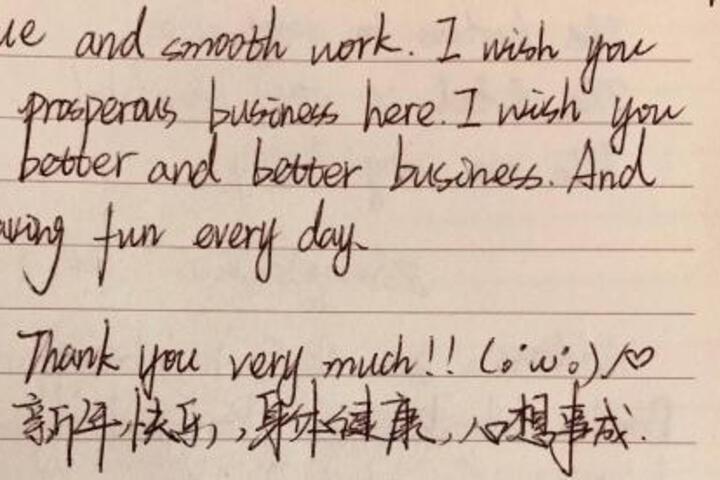 ue and smooth work. I wish you
prosperous business here. I wish you
better and better business. And
aving fun every day.
Thank you very much!! (｡･ω･｡)ﾉ♡
新年快乐,,身体健康,心想事成.